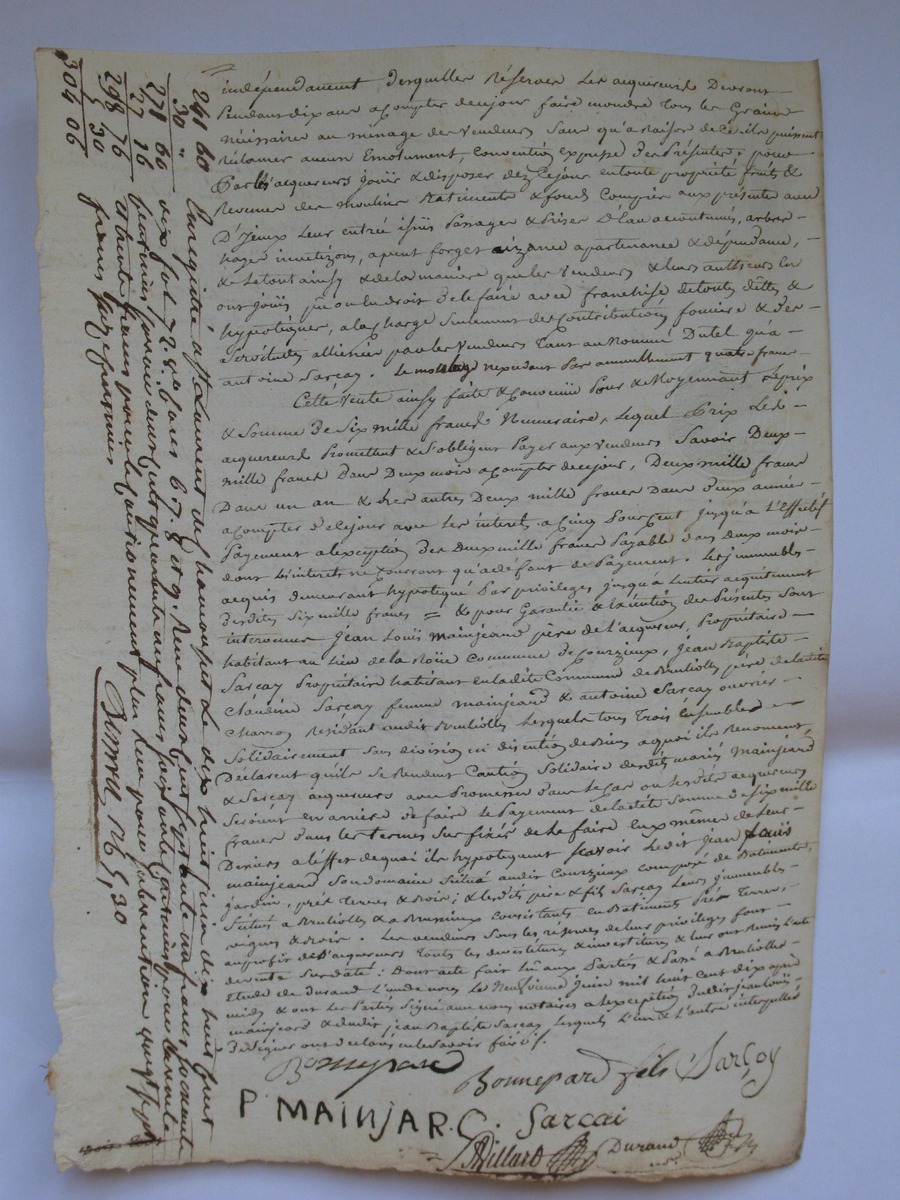 indépendament desquelles réserves les acquereurs Devront
Pendant dix ans a Compter de cejour faire moudre tous les Grains
nécéssaire au ménage des Vendeurs Sans qu'a raison de ce ils puissent
réclamer aucun Emolument, Convention expresse des Présentes; pour
Par les acquereurs jouir & disposer dez cejour en toute propriété fruits &
Revenus des moulins Batiments & fonds Compris aux présentes avec
D'iceux Leur entrée issües Passages & Prises D'Eau acoutumés, arbres
aizance apartenance & dépendance,
& le tout ainsy & de la maniere que les Vendeurs & leurs autheurs En
ont joüis pû ou eu droit de le faire avec franchise de toutes dettes &
hypotèques, a la Charge Seulement des Contributions fonciere & des
Servitudes par les Vendeurs tant au Nommé Dutel qu'a
antoine Sarcay. Le annuellement quatre francs
Cette Vente ainsy faite & Convenüe Pour & Moyennant Le prix
& Somme de Six mille francs Numeraire, Lequel Prix Les
acquereurs Promettent & s'obligent Payer aux Vendeurs Savoir Deux
mille francs Dans Deux mois a Compter de cejour, Deux mille francs
Dans un an & les autres Deux mille francs Dans deux années
a Compter de cejour avec les interets a Cinq Pour Cent jusqu'a L'Effectif
Payement a lexception des Deux mille francs Payable dans deux mois
dont L'interet ne Courront qu'a defaut de Payement. Les immeubles
acquis demeurant hypotequé Par privileges jusqu'a Lentier acquittement
Desdits Six mille francs = & pour Garantie & Exécution des Présentes Sont
intervenus Jean Loüis mainjeard père de l'acquereur, Propriétaire
habitant au Lieu de la Roüe Commune de Courzieux, Jean Baptiste
Sarcay Propriétaire habitant en ladite Commune de Brulliolles père de ladite
Claudine Sarcay femme mainjeard & antoine Sarcay ouvrier
Charron Résidant audit Brulliolles Lesquels tous Trois Ensembles
Solidairement Sans division ni discution de Biens a quoi ils Renoncent
Déclarent qu'ils Se Rendent Caution Solidaire desdits mariés Mainjeard
& Sarcay acquereurs avec Promesses dans le Cas ou lesdits acquereurs
Seroient en arriere de faire Le Payement de ladite Somme de Six mille
francs dans les termes Sus fixés de Le faire Eux même de Leurs
Deniers a L'effet de quoi ils hypotèquent Scavoir Ledit Jean Loüis
mainjeard Son domaine Situé audit Courzieux composé de Batiments,
jardin, prés terres & bois; & lesdits père & fils Sarcay Leurs immeubles
Situés a Brulliolles & a Brussieux Consistants En Batiments Prés terres,
vignes & bois. Les vendeurs Sous les réserves de leurs privileges font
au profit des acquereurs touts les devestitures & investitures &
devente Surdaté: Dont acte fait Lû aux Parties & Passé a Brulliolles
Etude de Durand L'un de nous Le Neufvieme Juin mil huit Cent dix après
midy & ont les Parties Signé avec nous notaires a lexception dudit jean loüis
mainjeard & dudit jean Baptiste Sarcay Lesquels L'un & L'autre interpellés
De Signer ont declarés ne Savoir faire ./.
Bonnepard
Bonnepard fils Sarçay
P. MAINJAR. C. Sarcai
Villard Durand
241 60
30 "
271 60
27 16
298 76
5 30
304 06
Enregistré à St Laurent de Chamousset Le dix huit juin dix huit Cent
dix fol. 72. Cases 6. 7. 8. et 9. Reçu deux Cent quarante un francs Soixante
Centimes pour la vente
francs pour le Cautionement plus
francs Seize Centimes
5,30